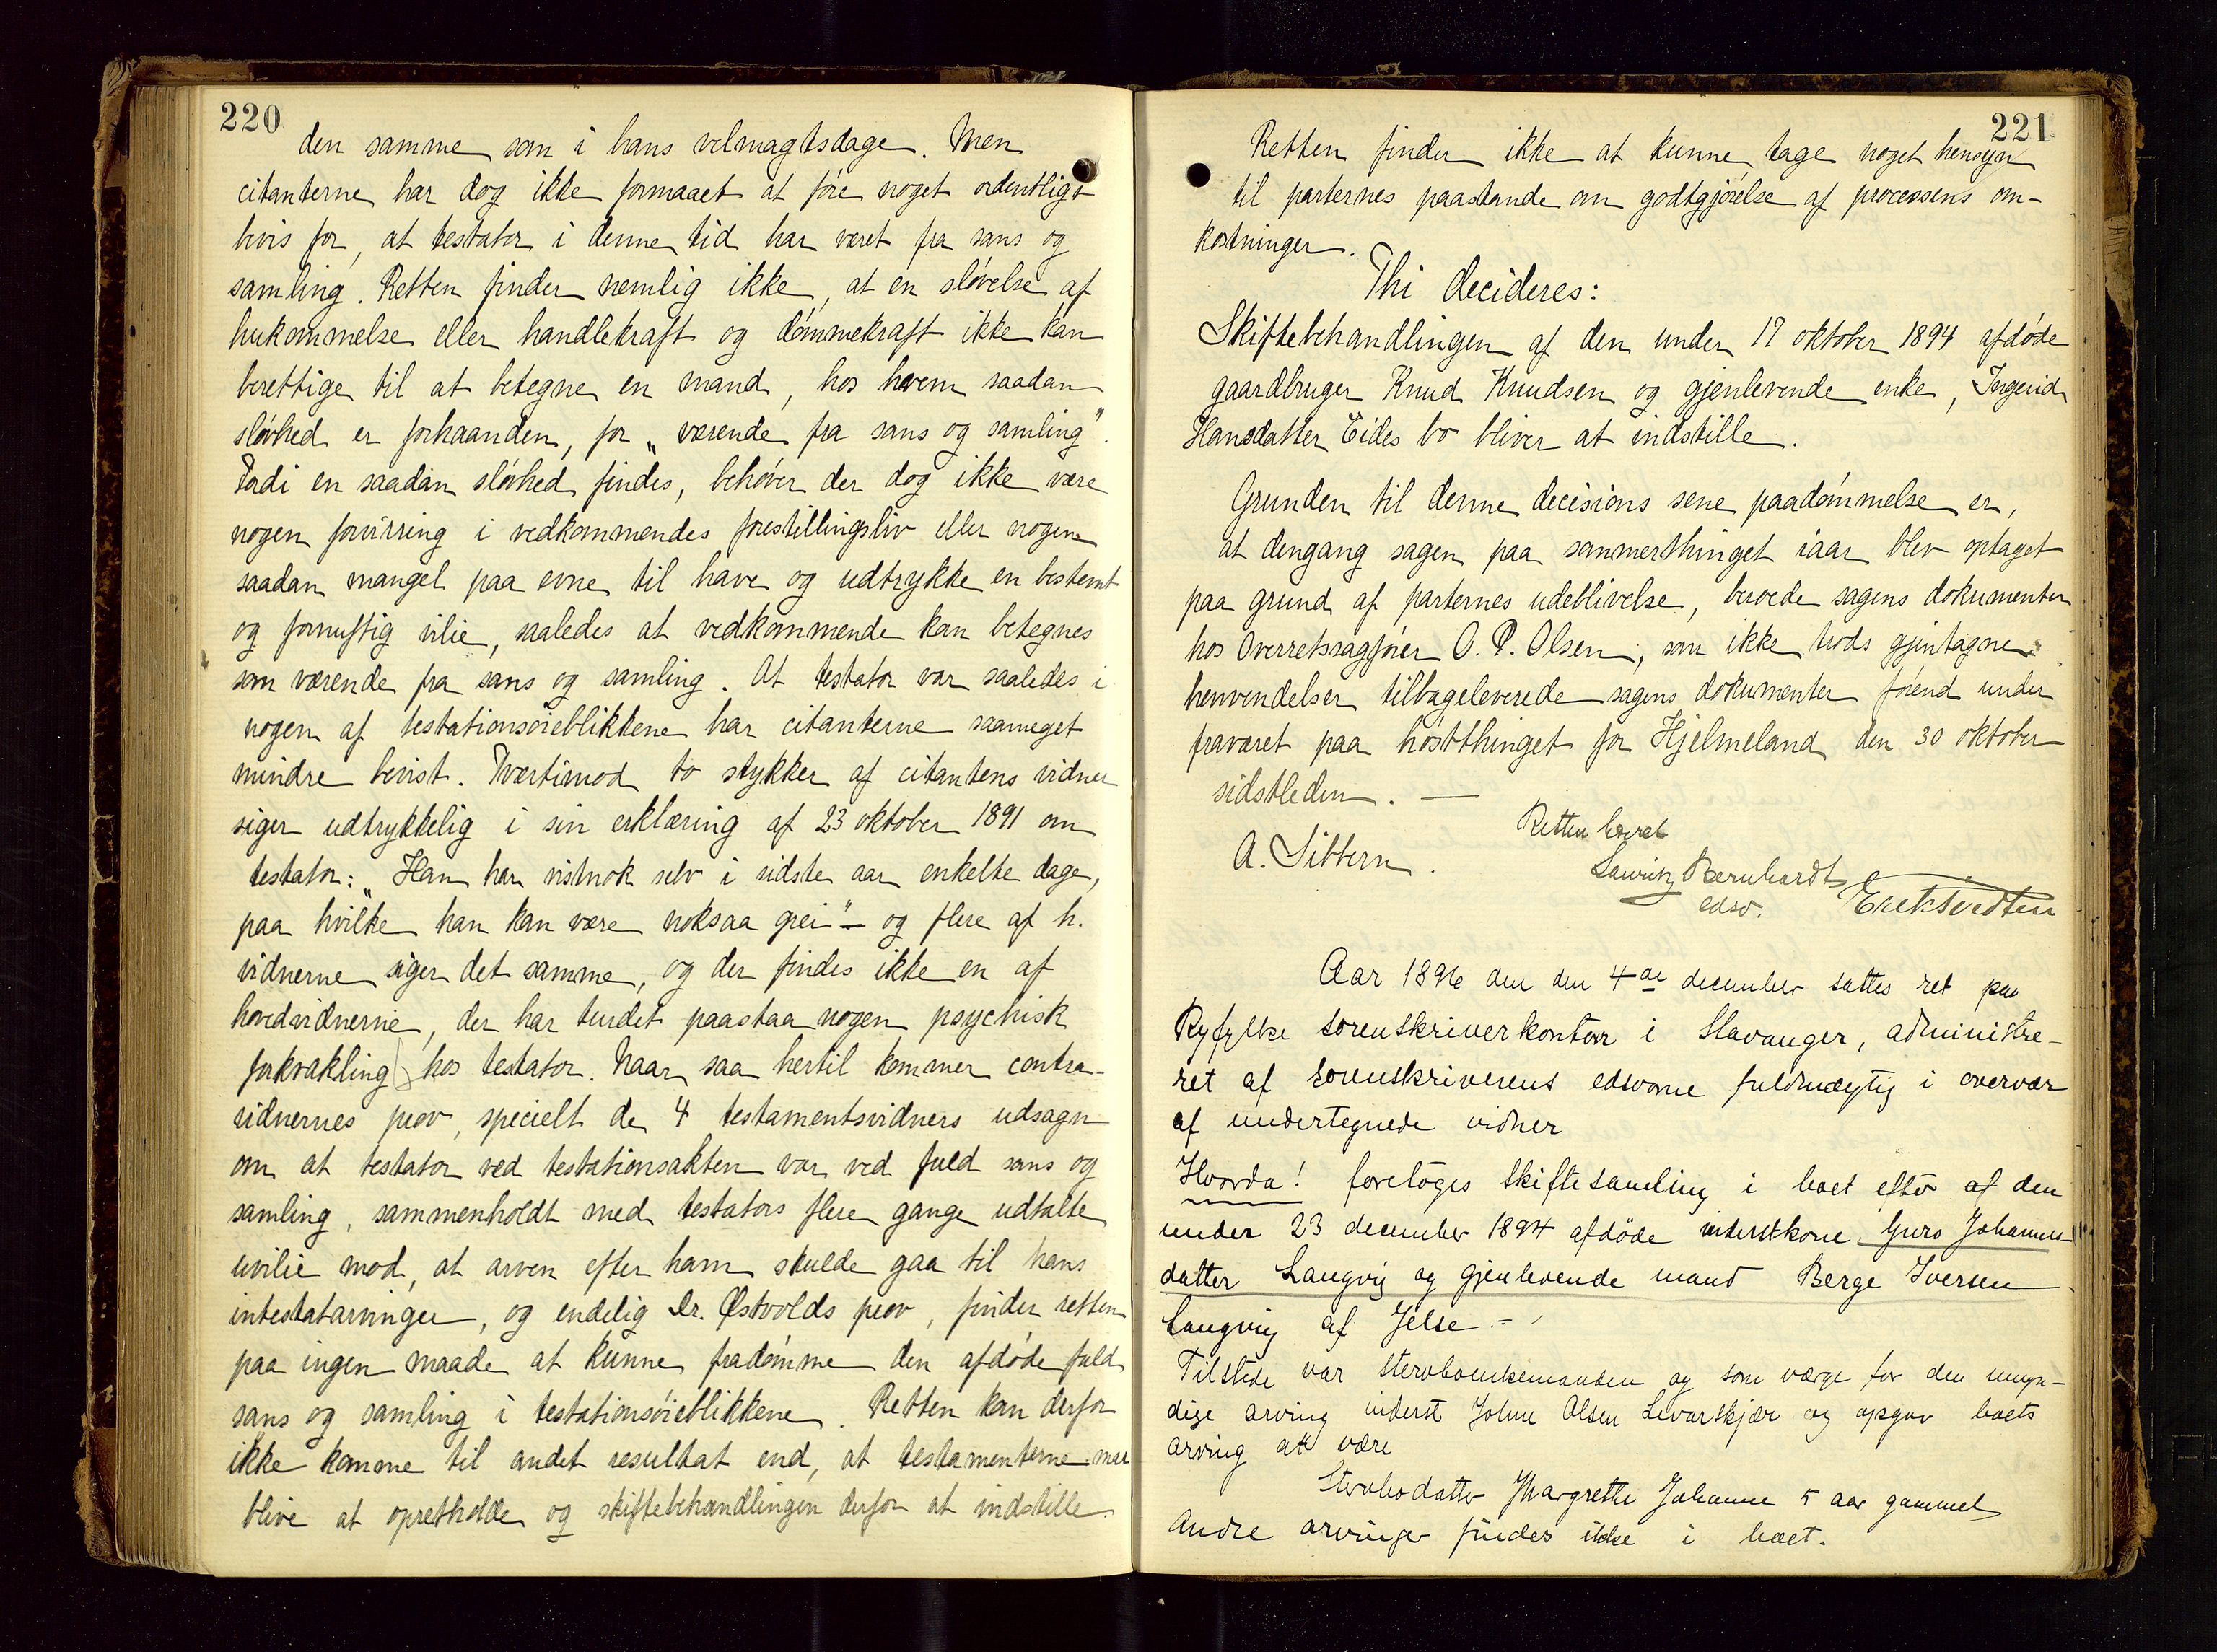 220
den samme som i hans velmagtsdage. Men
citanterne har dog ikke formaaet at føre noget ordentligt
bevis for, at testator i denne tid har været fra sans og
samling. Retten finder nemlig ikke, at en sløvelse af
hukommelse eller handlekraft og dømmekraft ikke kan
berettige til at betegne en mand, hos hvem saadan
sløvhed er forhaanden, for „værende fra sans og samling".
Fordi en saadan sløvhed findes, behøver der dog ikke være
nogen forvirring i vedkommendes forestillingsliv eller nogen
saadan mangel paa evne til have og udtrykke en bestemt
og fornuftig vilie, saaledes at vedkommende kan betegnes
som værende fra sans og samling. At testator var saaledes i
nogen af testationsøieblikkene har citanterne saameget
mindre bevist. Tværtimod to stykker af citantens vidner
siger udtrykkelig i sin erklæring af 23 oktober 1891 om
testator: „Han har vistnok selv i sidste aar enkelte dage,
paa hvilke han kan være noksaa grei" – og flere af h.
vidnerne siger det samme, og der findes ikke en af
hovedvidnerne, der har turdet paastaa nogen psychisk
forkvakling hos testator. Naar saa hertil kommer contra-
vidnernes prov, specielt de 4 testamentsvidners udsagn
om at testator ved testationsakten var ved fuld sans og
samling, sammenholdt med testators flere gange udtalte
uvilie mod, at arven efter ham skulde gaa til hans
intestatarvinger, og endelig Dr. Østvolds prov, finder retten
paa ingen maade at kunne fradømme den afdøde fuld
sans og samling i testationsøieblikkene. Retten kan derfor
ikke komme til andet resultat end, at testamenterne maa
blive at opretholde og skiftebehandlingen derfor at indstille.
221
Retten finder ikke at kunne tage noget hensyn
til parternes paastande om godtgjørelse af processens om-
kostninger.
Thi decideres:
Skiftebehandlingen af den under 17 oktober 1894 afdøde
gaardbruger Knud Knudsen og gjenlevende enke, Ingerid
Hansdatter Eides bo bliver at indstille.
Grunden til denne decisions sene paadømmelse er,
at dengang sagen paa sommerthinget iaar blev optaget
paa grund af parternes udeblivelse, beroede sagens dokumenter
hos Overretssagfører O. P. Olsen, som ikke trods gjentagne
henvendelser tilbageleverede sagens dokumenter førend under
fraværet paa høstthinget for Hjelmeland den 30 oktober
sidstleden. —
Retten hævet
A. Sibbern.
Lauritz Bernhardt
edsv.
Aar 1896 den den 4de december sattes ret paa
Ryfylke sorenskriverkontor i Stavanger, administre-
ret af sorenskriverens edsvorne fuldmægtig i overvær
af undertegnede vidner
Hvorda! foretoges skiftesamling i boet efter af den
under 23 december 1894 afdøde inderstkone Guro Johannes-
datter Langvig og gjenlevende mand Berge Iversen
Langvig af Jelse. –
Tilstede var stervboenkemanden og som værge for den umyn-
dige arving inderst John Olsen Levarskjær og opgav boets
arving at være
Stervbodatter Margrethe Johanne 5 aar gammel
Andre arvinger findes ikke i boet.